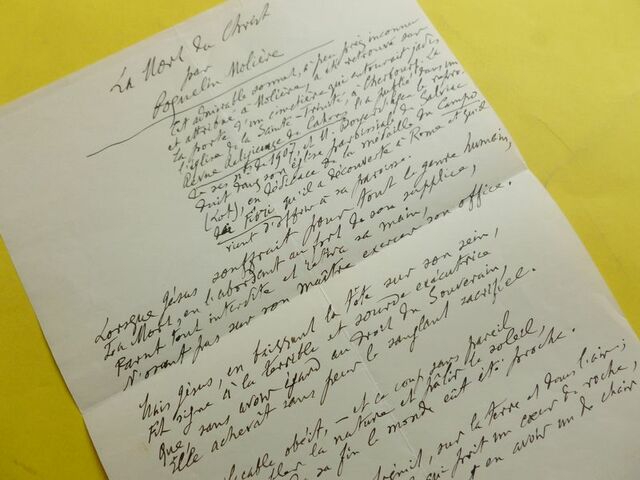 La Mort du Christ
par
Poquelin Molière
Cet admirable sonnet, à peu près inconnu
et attribué à Molière, a été retrouvé sur
la porte d'un cimetière qui entourait jadis
l'église de la Sainte-Trinité, à Cherbourg. La
Revue Religieuse de Cahors l'a publié dans un
de ses nos de 1907, et M. Boyer
dans son église paroissiale de Salviac
(Lot), en dédicace de la médaille du Campo
dei Fiori qu'il a découverte à Rome et qu'il
vient d'offrir à sa paroisse.
Lorsque Jésus souffrait pour tout le genre humain,
La Mort, en l'abordant au fort de son supplice,
Parut tout interdite et retira sa main,
N'osant pas sur son maître exercer son office.
Mais Jésus, en baissant la tête sur son sein,
Fit signe à la terrible et sourde exécutrice
Que, sans avoir égard au droit du Souverain,
Elle achevât sans peur le sanglant sacrifice.
obéit, — et ce coup sans pareil
la nature et pâlir le soleil,
sa fin le monde eût été proche.
, sur la terre et dans l'air;
qui prit un cœur de roche,
en avoir un de chair